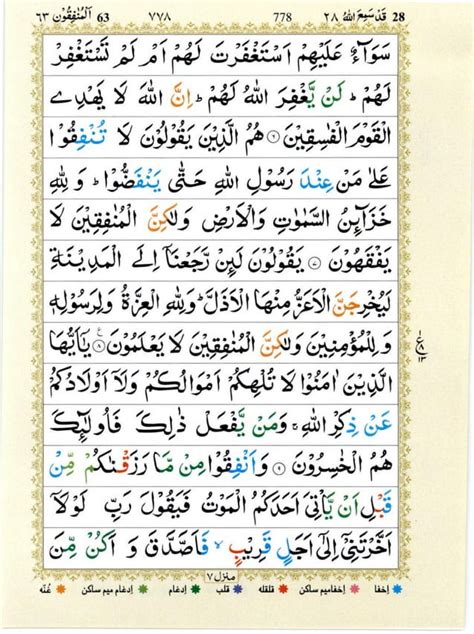 اَلْمُنٰفِقُوْن 63 ٦٣ ٧٧٨ 778 قَدْ سَمِعَ اللّٰهُ ٢٨ 28
سَوَآءٌ عَلَيْهِمْ اَسْتَغْفَرْتَ لَهُمْ اَمْ لَمْ تَسْتَغْفِرْ
لَهُمْ ؕ لَنْ يَّغْفِرَ اللّٰهُ لَهُمْ ؕ اِنَّ اللّٰهَ لَا يَهْدِى
الْقَوْمَ الْفٰسِقِيْنَ ۝٦ هُمُ الَّذِيْنَ يَقُوْلُوْنَ لَا تُنْفِقُوْا
عَلٰى مَنْ عِنْدَ رَسُوْلِ اللّٰهِ حَتّٰى يَنْفَضُّوْا ؕ وَ لِلّٰهِ
خَزَآئِنُ السَّمٰوٰتِ وَالْاَرْضِ وَلٰكِنَّ الْمُنٰفِقِيْنَ لَا
يَفْقَهُوْنَ ۝٧ يَقُوْلُوْنَ لَئِنْ رَّجَعْنَاۤ اِلَى الْمَدِيْنَةِ
لَيُخْرِجَنَّ الْاَعَزُّ مِنْهَا الْاَذَلَّ ؕ وَلِلّٰهِ الْعِزَّةُ وَلِرَسُوْلِهٖ
وَلِلْمُؤْمِنِيْنَ وَلٰكِنَّ الْمُنٰفِقِيْنَ لَا يَعْلَمُوْنَ ۝٨ يٰۤاَيُّهَا
ع ٨ ١٣
الَّذِيْنَ اٰمَنُوْا لَا تُلْهِكُمْ اَمْوَالُكُمْ وَلَاۤ اَوْلَادُكُمْ
عَنْ ذِكْرِ اللّٰهِ ۚ وَمَنْ يَّفْعَلْ ذٰلِكَ فَاُولٰٓئِكَ
هُمُ الْخٰسِرُوْنَ ۝٩ وَاَنْفِقُوْا مِنْ مَّا رَزَقْنٰكُمْ مِّنْ
قَبْلِ اَنْ يَّاْتِىَ اَحَدَكُمُ الْمَوْتُ فَيَقُوْلَ رَبِّ لَوْلَاۤ
اَخَّرْتَنِىْۤ اِلٰٓى اَجَلٍ قَرِيْبٍ ۙ فَاَصَّدَّقَ وَ اَكُنْ مِّنَ
منزل ٧
اخفا اخفامیم ساکن قلقلہ قلب ادغام ادغام میم ساکن غنّہ